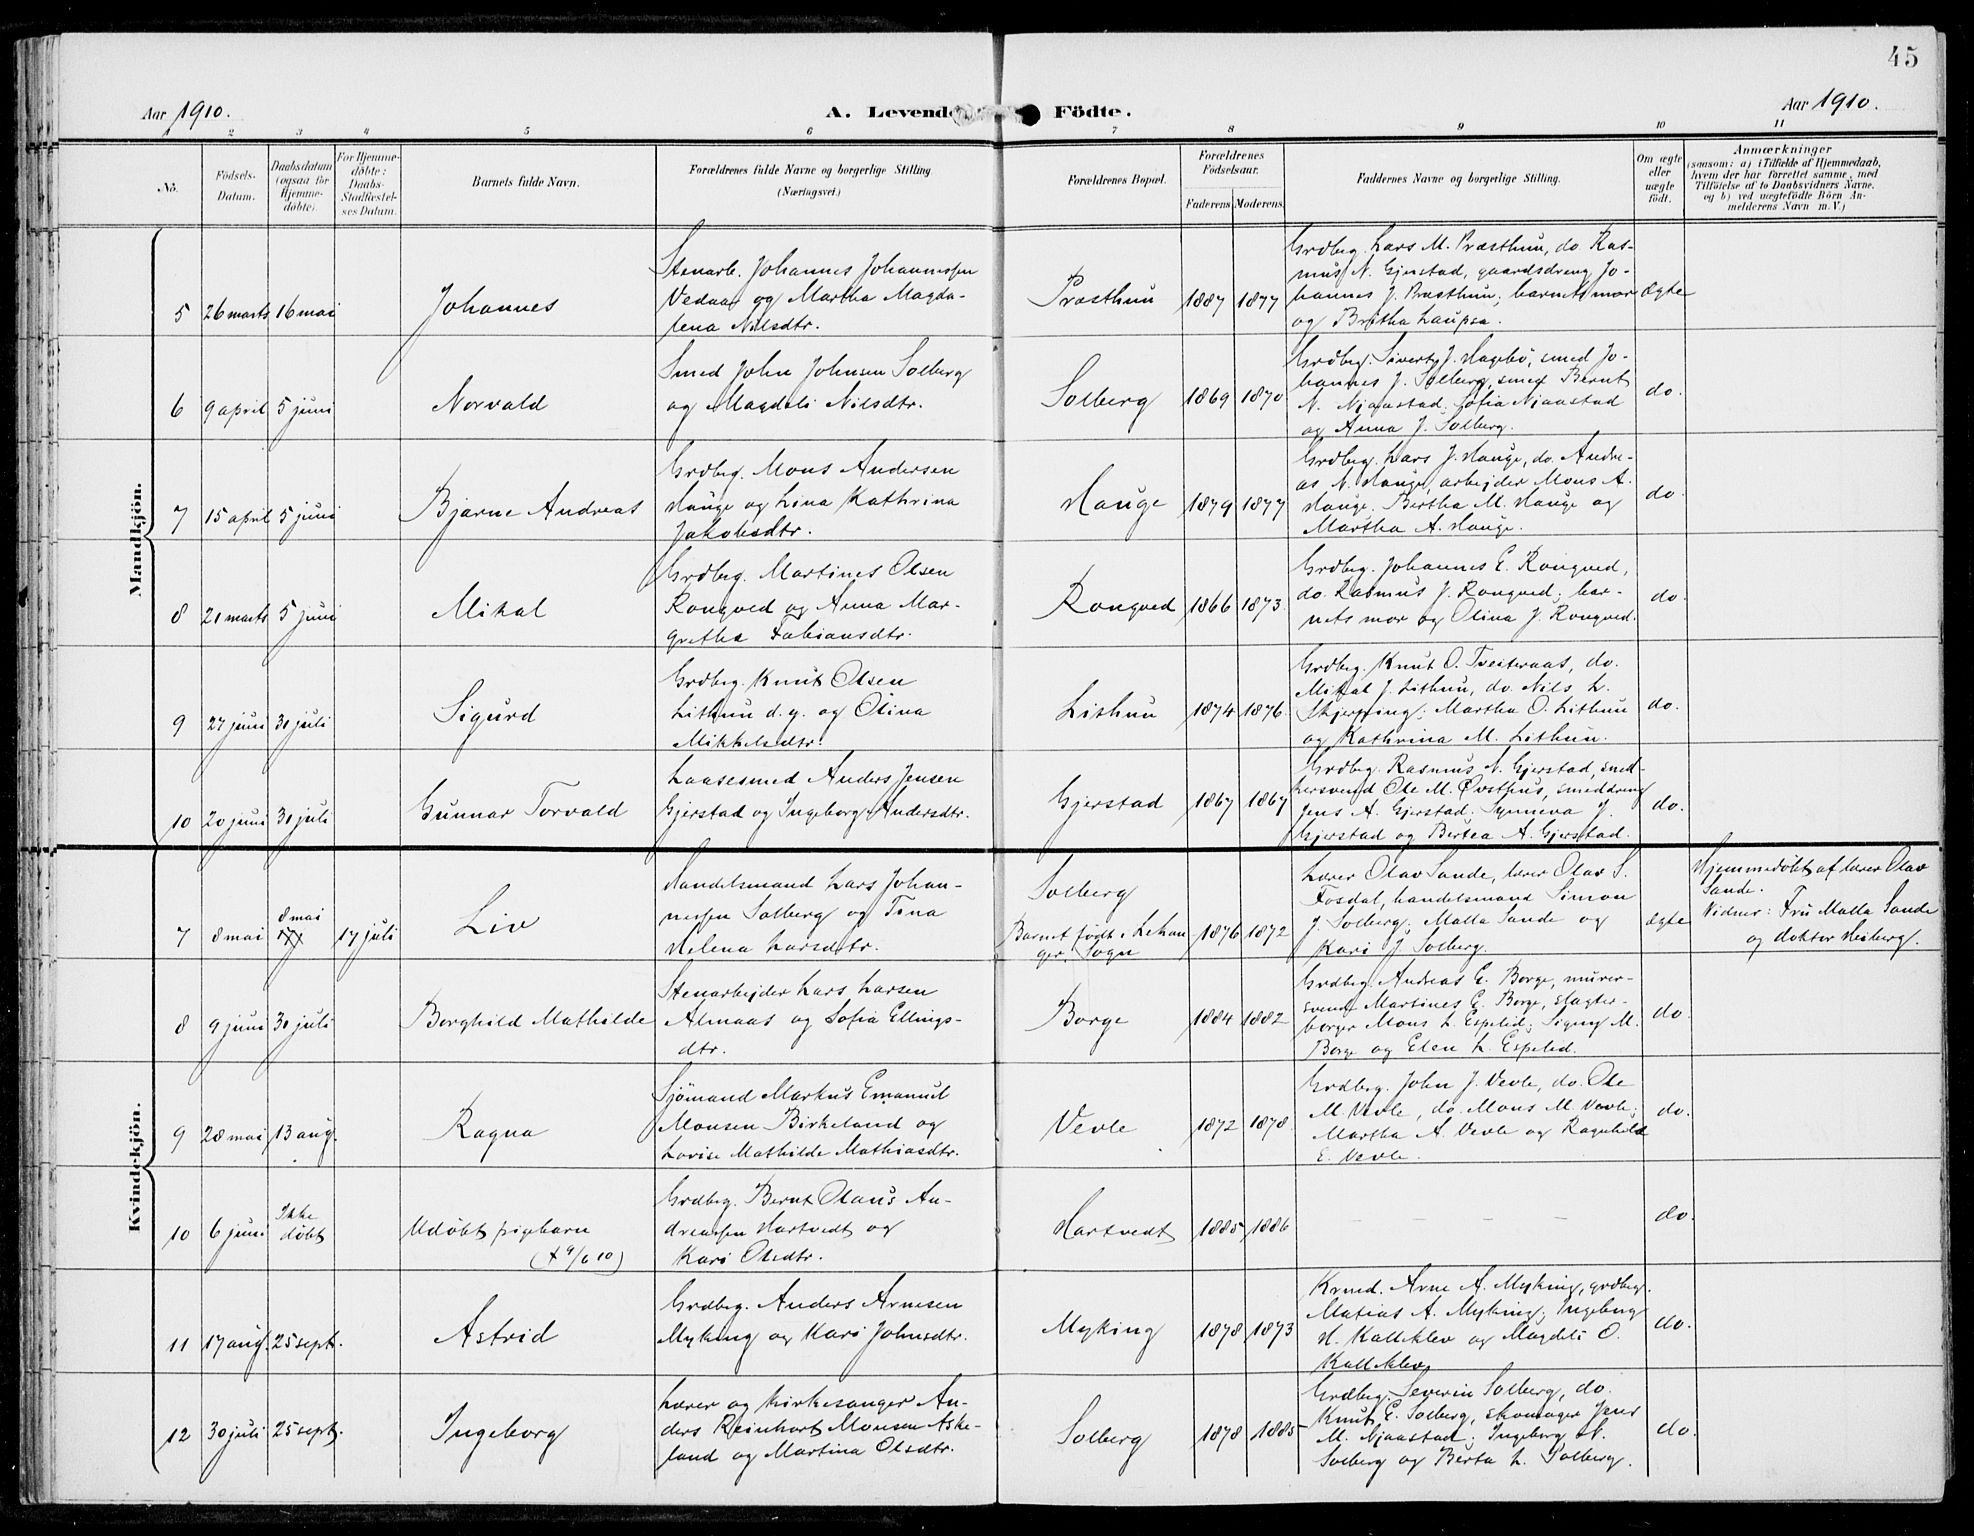 45
Aar 1910.
A. Levende Födte.
Aar 1910.
1 2 3 4 5 6 7 8 9 10 11
No.
Födsels-
Datum.
Daabsdatum
(ogsaa for
Hjemme-
döbte).
For Hjemme-
döbte:
Daabs-
Stadfæstel-
ses Datum.
Barnets fulde Navn.
Forældrenes fulde Navne og borgerlige Stilling
(Næringsvei.)
Forældrenes Bopæl.
Forældrenes
Födselsaar.
Faderens
Moderens
Faddernes Navne og borgerlige Stilling.
Om ægte
eller
uægte
födt.
Anmærkninger
(saasom: a) i Tilfælde af Hjemmedaab,
hvem der har forrettet samme, med
Tilföielse af to Daabsvidners Navne,
og b) ved uægtefödte Börn An-
melderens Navn m.V.)
Mandkjön.
5
26 marts
16 mai
Johannes
Stenarb. Johannes Johannessen
Vedaa og Martha Magda-
lena Nilsdtr.
Præsthun
1887
1877
Grdbrg. Lars M. Præsthun, do Ras-
mus N. Gjerstad, gaardsdreng Jo-
hannes J. Præsthun; barnets mor
og Brita Laupsa.
Ægte
6
9 april
5 juni
Norvald
Smed John Johnsen Solberg
og Magdeli Nilsdtr.
Solberg
1869
1870
Grdbrg. Sivert J. Hagebö, smed Jo-
hannes J. Solberg, smed Bernt
N. Njaastad; Sofia Njaastad
og Anna J. Solberg.
do.
7
15 april
5 juni
Bjarne Andreas
Grdbrg. Mons Andersen
Hauge og Lina Kathrina
Jakobsdtr.
Hauge
1879
1877
Grdbrg. Lars J. Hauge, do. Andre-
as N. Hauge, arbejder Mons A.
Hauge; Bertha M. Hauge og
Martha A. Hauge.
do.
8
21 marts
5 juni
Mikal
Grdbrg. Martines Olsen
Rongved og Anna Mar-
gretha Fabiansdtr.
Rongved
1866
1873
Grdbrg. Johannes E. Rongved,
do. Rasmus J. Rongved; bar-
nets mor og Olina J. Rongved.
do.
9
27 juni
31 juli
Sigurd
Grdbrg. Knut Olsen
Lithun d.y. og Olina
Mikkelsdtr.
Lithun
1874
1876
Grdbrg. Knut O. Tveiteraas, do.
Mikal J. Lithun, do. Nils L.
Skjerping; Martha O. Lithun
og Kathrina M. Lithun.
do.
10
20 juni
31 juli
Gunnar Torvald
Laasesmed Anders Jensen
Gjerstad og Ingeborg Andersdtr.
Gjerstad
1867
1867
Grdbrg. Rasmus N. Gjerstad, smed-
Ole M. Øvsthus, smeddreng
Jens A. Gjerstad; Synneva J.
Gjerstad og Bertea A. Gjerstad.
do.
Kvindekjön.
7
8 mai
8 mai
17 juli
Liv
Handelsmand Lars Johan-
nessen Solberg og Tina
Helena Larsdtr.
Solberg
Barnet født i Lekan
ger, Sogn
1876
1872
Lærer Olav Sande, lærer Olav S.
Fosdal, handelsmand Simon
J. Solberg; Malla Sande og
Kari J. Solberg.
ægte
Hjemmedöbt af lærer Olav
Sande.
Vidner: Fru Malla Sande
og doktor Heiberg.
8
9 juni
31 juli
Borghild Mathilde
Stenarbejder Lars Larsen
Almaas og Sofia Ellings-
dtr.
Borge
1884
1882
Grdbrg. Andreas E. Borge, murer-
svend Martines E. Borge, slagter-
borger Mons L. Espelid; Signy M.
Borge og Elen L. Espelid.
do.
9
28 mai
13 aug.
Ragna
Sjömand Markus Emanuel
Monsen Birkeland og
Lovise Mathilde Mathiasdtr.
Vevle
1872
1878
Grdbrg. John J. Vevle, do. Ole
M. Vevle, do. Mons M. Vevle;
Martha A. Vevle og Ragnhild
E. Vevle.
do.
10
6 juni
Ikke
döbt
Udöbt pigebarn
(† 9/6 10)
Grdbrg. Bernt Olaus An-
dreassen Hartvedt og
Kari Olsdtr.
Hartvedt
1885
1886
– – – –
do.
11
17 aug.
25 sept.
Astrid
Grdbrg. Anders Arnesen
Myking og Kari Johnsdtr.
Myking
1878
1873
Krmd. Arne A. Myking, grdbrg.
Matias A. Myking; Ingeborg
H. Kalleklev og Magdeli O.
Kalleklev
do.
12
30 juli
25 sept.
Ingeborg
Lærer og kirkesanger An-
ders Reinhart Monsen Aske-
land og Martina Olsdtr.
Solberg
1878
1885
Grdbrg. Severin Solberg, do.
Knut E. Solberg, skomager Jens
M. Njaastad; Ingeborg N.
Solberg og Berta L. Solberg.
do.